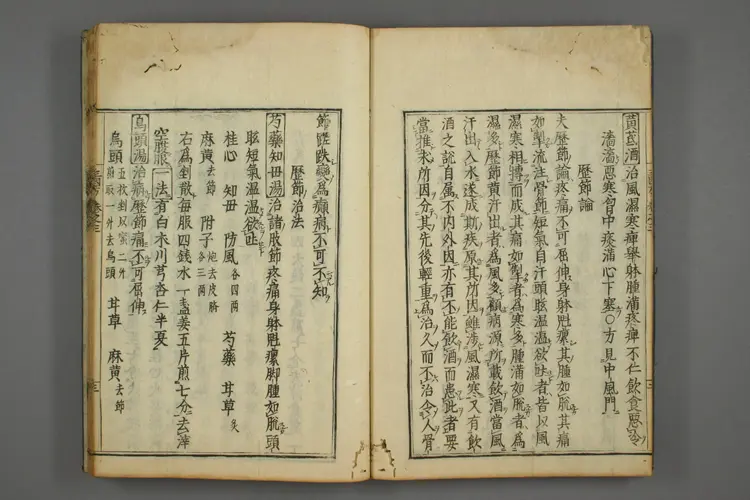 黄芪酒治風濕寒痺舉躰腫滿疼痺不仁飲食惡冷
濇濇惡寒胷中痰滿心下塞〇方見中風門
歷節論
夫歷節論疼痛不可屈伸身躰尫瘰其腫如脫其痛
如掣流注骨節短氣自汗頭眩温温欲吐者皆以風
濕寒相搏而成其痛如掣者為寒多腫滿如脫者為
濕多歷節黄汗出者為風多顧病源所載飲酒當風
汗出入水遂成斯疾原其所因雖涉風濕寒又有飲
酒之說自属不内外因亦有不能飲酒而患此者要
當推求所因分其先後輕重為治久而不治令人骨
節蹉跌變為癲病不可不知
歷節治法
芍藥知毋湯治諸肢節疼痛身躰尫瘰脚腫如脫頭
眩短氣温温欲吐
桂心 知毋 防風各四兩 芍藥 甘草炙
麻黄去節 附子炮去皮臍各三兩
右為剉散每服四錢水一盞姜五片煎七分去滓
空腹服一法有白朮川芎杏仁半夏
烏頭湯治病歷節痛不可屈伸
烏頭五枚剉以蜜二升煎取一升去烏頭 甘草 麻黄去節